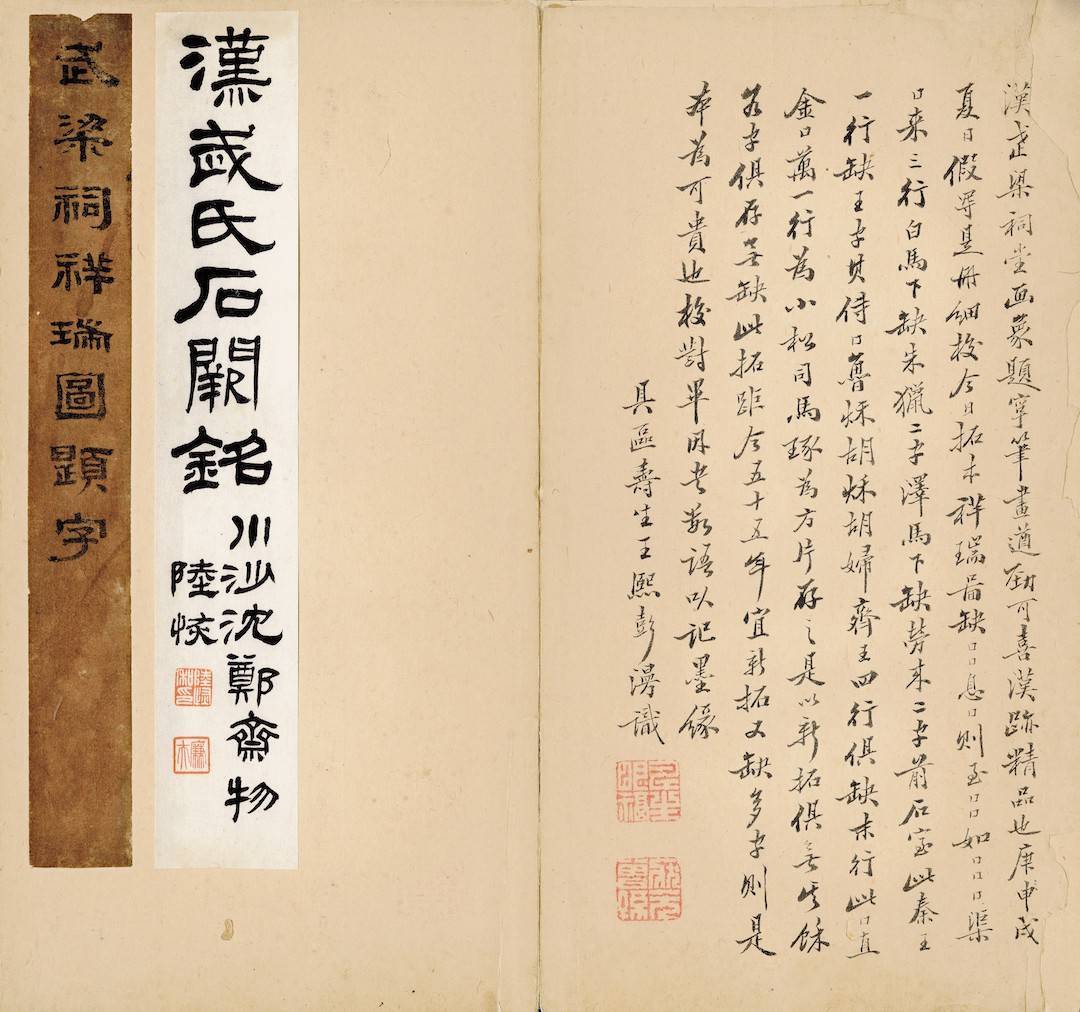 漢武梁祠堂画象題字筆畫遒勁可喜漢跡精品也庚申
夏日假得是册細校今日拓本祥瑞圖缺口口息口則至口口如口口口渠
口来三行白馬下缺朱獵二字澤馬下缺勞来二字前石室此秦王
一行缺王字其侍口魯秋胡秋胡婦齊王四行俱缺末行此口直
金口萬一行為小松司馬琢為方片存之是以新拓俱無
字俱存無缺此拓距今五十五年宜新拓又缺多字則是
本為可貴也校對畢因書数語以記墨緣
具區壽生王熙彭識
漢武氏石闕銘
川沙沈鄭齋物
陸恢
廉夫
武梁祠祥瑞圖題字